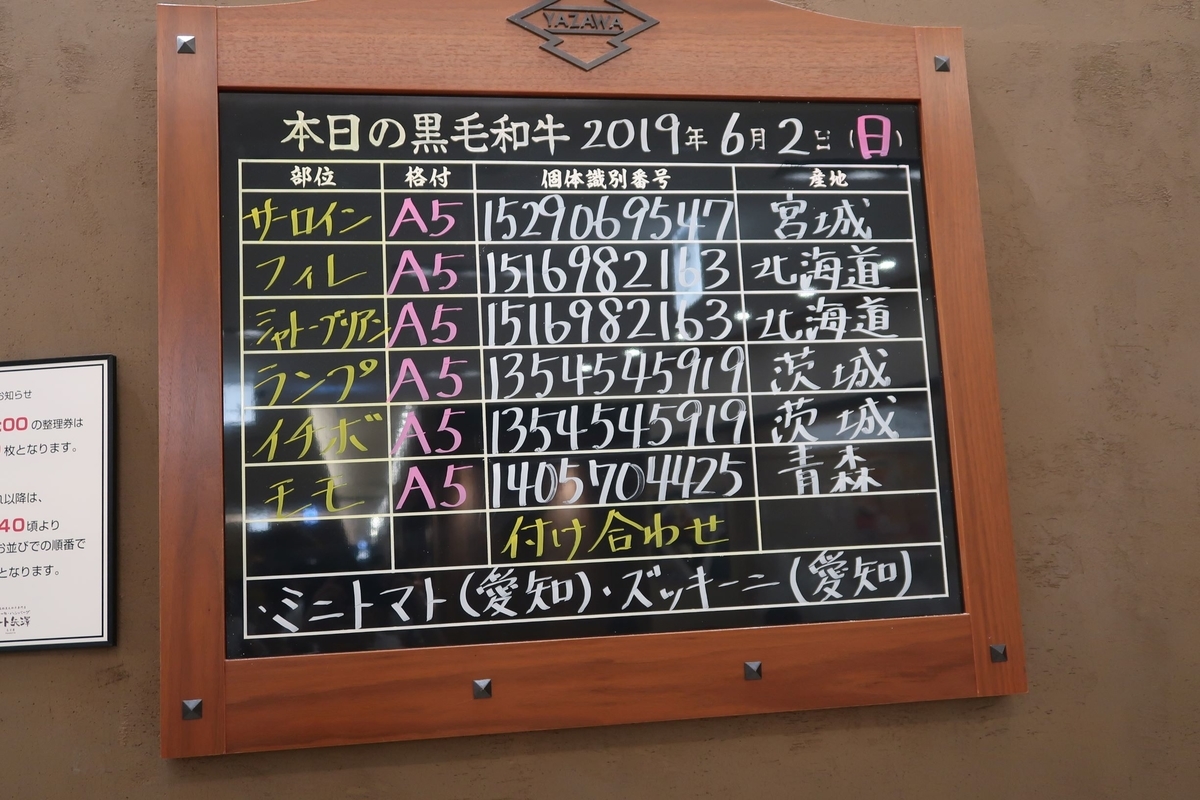 YAZAWA
本日の黒毛和牛 2019年 6月 2日 (日)
部位 格付 個体識別番号 産地
サーロイン A5 1529069547 宮城
フィレ A5 1516982163 北海道
シャトーブリアン A5 1516982163 北海道
ランプ A5 1354545919 茨城
イチボ A5 1354545919 茨城
モモ A5 1405704425 青森
付け合わせ
・ミニトマト(愛知)・ズッキーニ(愛知)
お知らせ
:00 の整理券は
枚となります。
以降は、
40頃より
お並びでの順番で
となります。